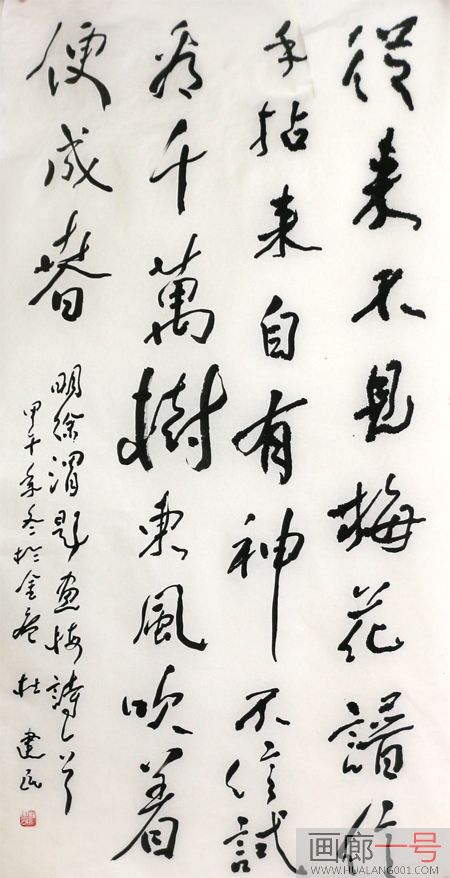 從來不見梅花譜信
手拈來自有神不信試
看千萬樹東風吹着
便成春
明徐渭題畫梅詩一首
甲午年冬於金 杜建民
画廊一号
WWW.HUALANG001.COM